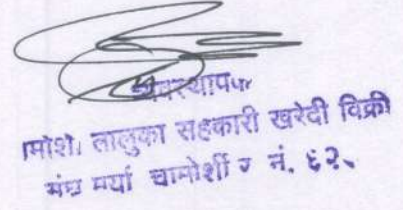 व्यवस्थापक
तालुका सहकारी खरेदी विक्री
संघ मर्या चामोर्शी र नं. ६२